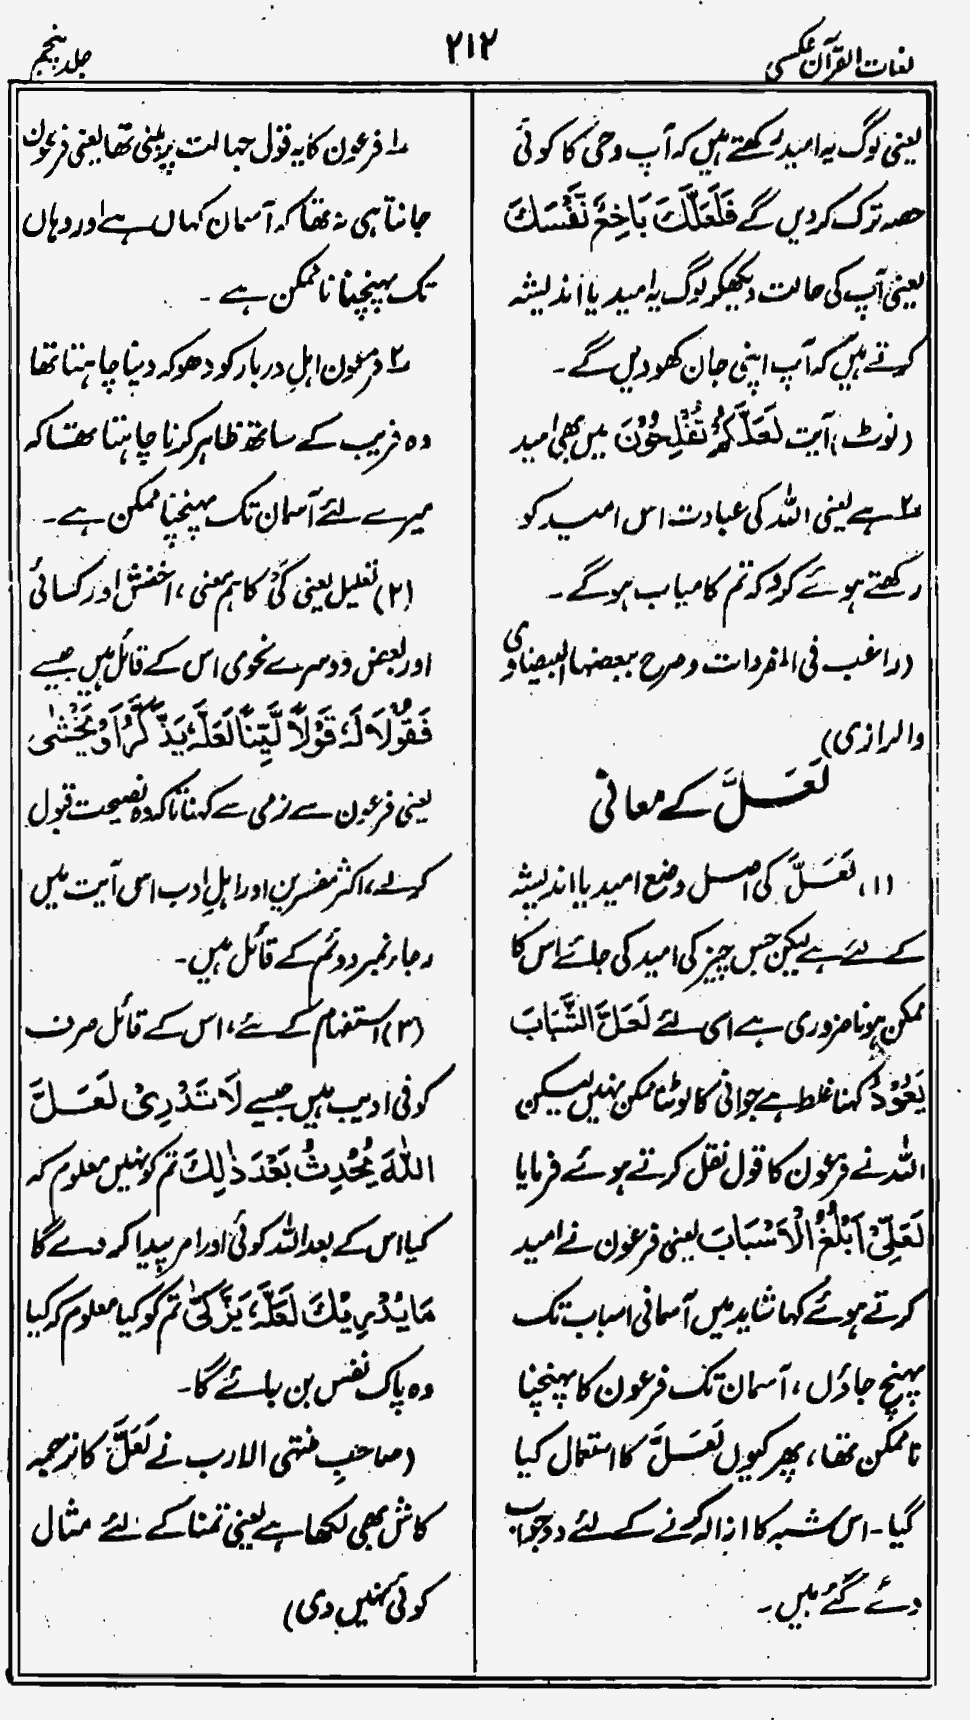 لغات القرآن عکسی
۲۱۲
جلد پنجم
یعنی لوگ یہ امید رکھتے ہیں کہ آپ وحی کا کوئی
حصہ ترک کر دیں گے فَلَعَلَّكَ بَاخِعٌ نَّفْسَكَ
یعنی آپ کی حالت دیکھکر لوگ یہ امید یا اندیشہ
کرتے ہیں کہ آپ اپنی جان کھو دیں گے۔
(نوٹ) آیت لَعَلَّكُمْ تُفْلِحُوْنَ میں بھی امید
۲ ہے یعنی اللہ کی عبادت اس امید کو
رکھتے ہوئے کرو کہ تم کامیاب ہو گے۔
(راغب فی المفردات وصرح ببعضہا البیضاوی
والرازی)
لَعَلَّ کے معانی
(۱) لَعَلَّ کی اصل وضع امید یا اندیشہ
کے لئے ہے لیکن جس چیز کی امید کی جائے اس کا
ممکن ہونا ضروری ہے اسی لئے لَعَلَّ الشَّبَابَ
يَعُوْدُ کہنا غلط ہے جوانی کا لوٹنا ممکن نہیں لیکن
اللہ نے فرعون کا قول نقل کرتے ہوئے فرمایا
لَعَلِّيْ اَبْلُغُ الْاَسْبَابَ یعنی فرعون نے امید
کرتے ہوئے کہا شاید میں آسمانی اسباب تک
پہنچ جاؤں، آسمان تک فرعون کا پہنچنا
ناممکن تھا، پھر کیوں لَعَلَّ کا استعمال کیا
گیا۔ اس شبہ کا ازالہ کرنے کے لئے دو جواب
دئے گئے ہیں۔
۱ فرعون کا یہ قول جہالت پر مبنی تھا یعنی فرعون
جانتا ہی نہ تھا کہ آسمان کہاں ہے اور وہاں
تک پہنچنا ناممکن ہے۔
۲ فرعون اہلِ دربار کو دھوکہ دینا چاہتا تھا
وہ فریب کے ساتھ ظاہر کرنا چاہتا تھا کہ
میرے لئے آسمان تک پہنچنا ممکن ہے۔
(۲) تعلیل یعنی کَیْ کا ہم معنی، اخفش اور کسائی
اور بعض دوسرے نحوی اس کے قائل ہیں جیسے
فَقُوْلَا لَهٗ قَوْلًا لَّيِّنًا لَعَلَّهٗ يَذَّكَّرُ اَوْ يَخْشٰى
یعنی فرعون سے نرمی سے کہنا تاکہ وہ نصیحت قبول
کر لے، اکثر مفسرین اور اہلِ ادب اس آیت میں
رجاء نمبر دوئم کے قائل ہیں۔
(۳) استفہام کے لئے، اس کے قائل صرف
کوفی ادیب ہیں جیسے لَا تَدْرِىْ لَعَلَّ
اللّٰهَ يُحْدِثُ بَعْدَ ذٰلِكَ تم کو نہیں معلوم کہ
کیا اس کے بعد اللہ کوئی اور امر پیدا کر دے گا
مَا يُدْرِيْكَ لَعَلَّهٗ يَزَّكّٰى تم کو کیا معلوم کہ کیا
وہ پاک نفس بن جائے گا۔
(صاحبِ منتہی الارب نے لَعَلَّ کا ترجمہ
کاش بھی لکھا ہے یعنی تمنا کے لئے مثال
کوئی نہیں دی)